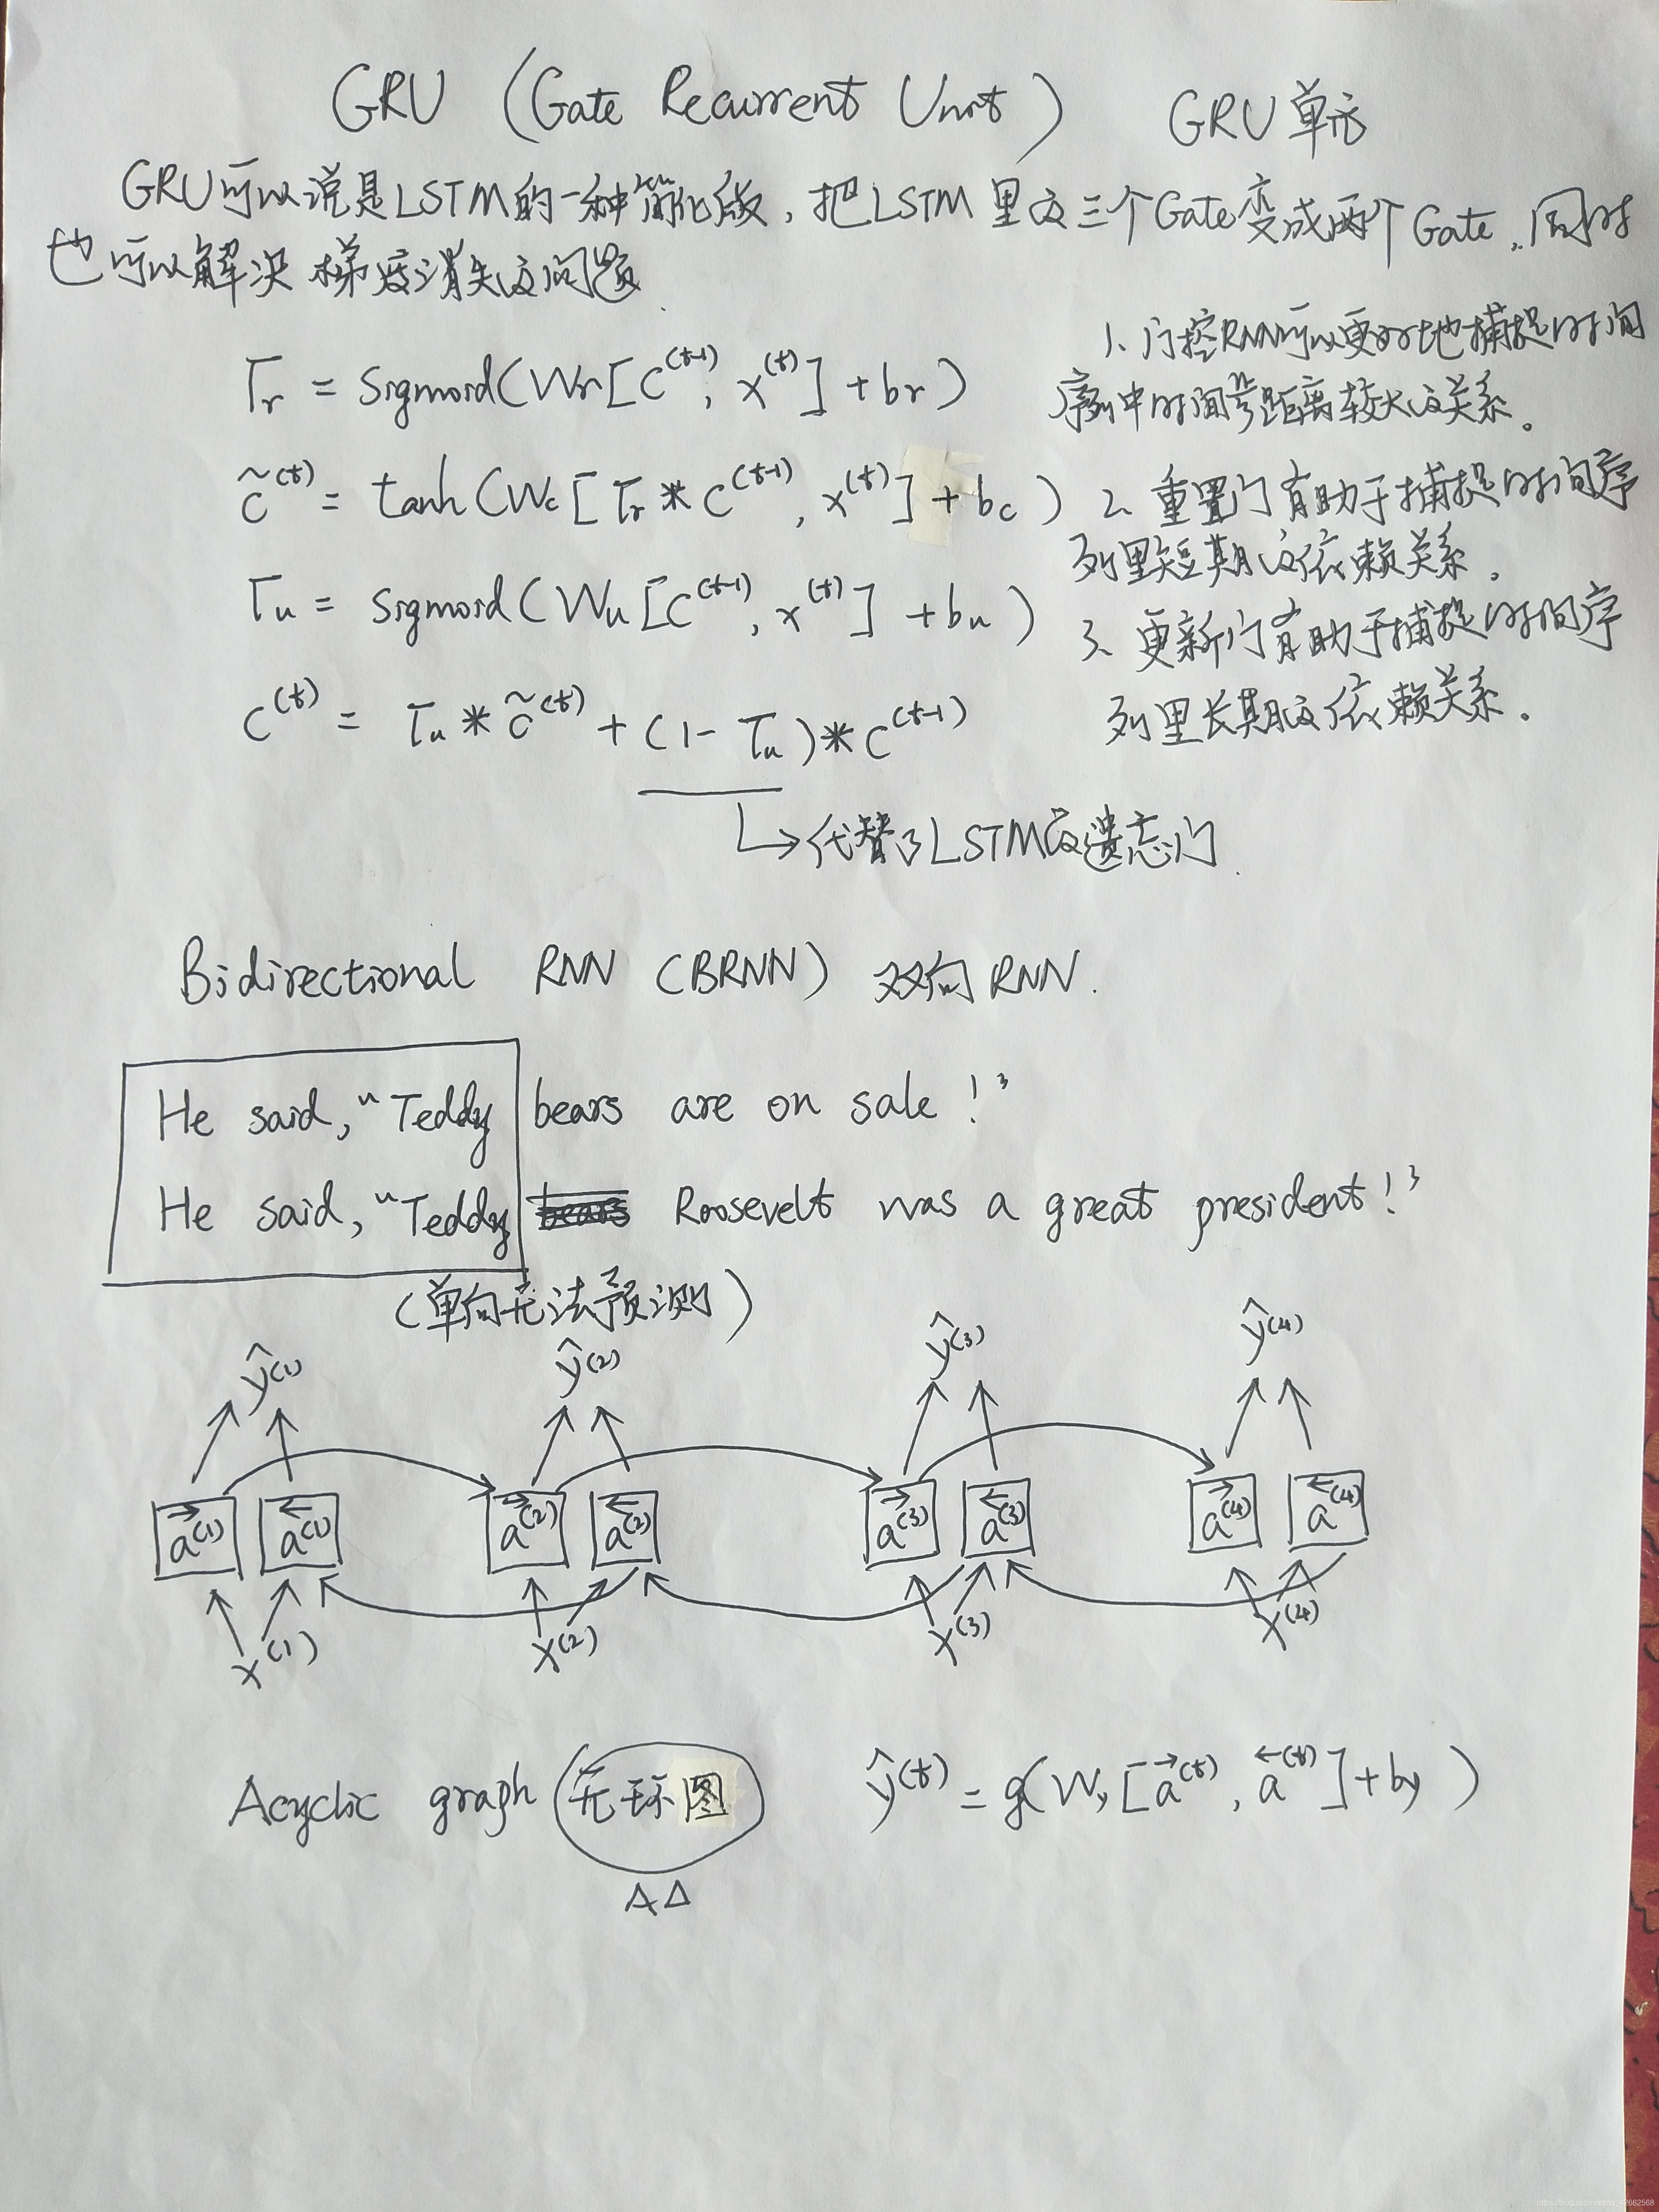 GRU (Gate Recurrent Unit) GRU单元
GRU可以说是LSTM的一种简化版，把LSTM里的三个Gate变成两个Gate，同时
也可以解决梯度消失的问题.
Γr = Sigmoid(Wr[C^(t-1), x^(t)] + br)
c̃^(t) = tanh(Wc[Γr * C^(t-1), x^(t)] + bc)
Γu = Sigmoid(Wu[C^(t-1), x^(t)] + bu)
C^(t) = Γu * c̃^(t) + (1 - Γu) * C^(t-1)
代替了LSTM的遗忘门.
1、门控RNN可以更好地捕捉时间
序列中时间步距离较大的关系。
2、重置门有助于捕捉时间序
列里短期的依赖关系.
3、更新门有助于捕捉时间序
列里长期的依赖关系.
Bidirectional RNN (BRNN) 双向RNN.
He said, "Teddy bears are on sale!"
He said, "Teddy Roosevelt was a great president!"
(单向无法预测)
ŷ^(1) ŷ^(2) ŷ^(3) ŷ^(4)
→a^(1) ←a^(1) →a^(2) ←a^(2) →a^(3) ←a^(3) →a^(4) ←a^(4)
x^(1) x^(2) x^(3) x^(4)
Acyclic graph (无环图) ŷ^(t) = g(Wy[→a^(t), ←a^(t)] + by)